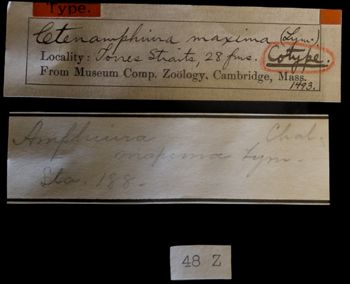 Type.
Ctenamphiura maxima (Lym.)
Locality: Torres Straits, 28 fms. Cotype.
From Museum Comp. Zoölogy, Cambridge, Mass.
1493.
Amphiura Chal.
maxima Lym.
Sta. 188.
48 Z